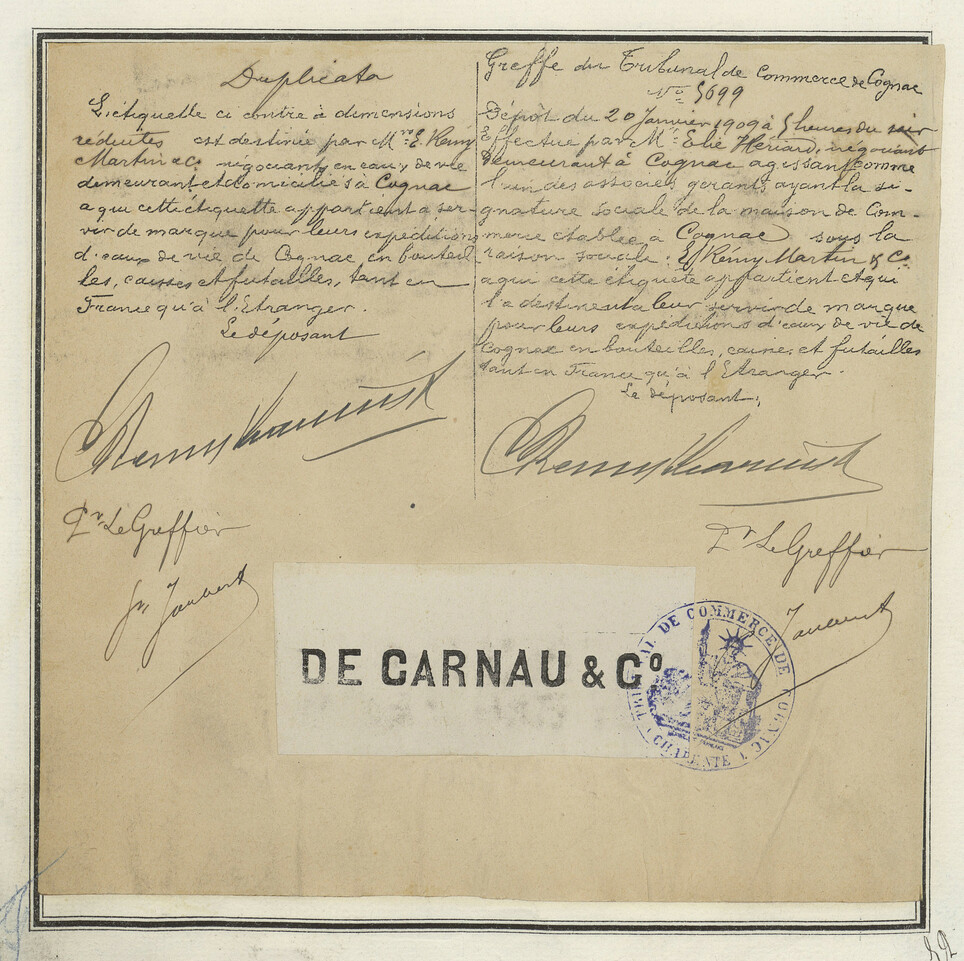 Duplicata
L'étiquette ci contre à dimensions
réduites est destinée par Mrs E. Rémy
Martin & Co négociants en eaux de vie
demeurant et domiciliés à Cognac
a qui cette étiquette appartient a ser-
vir de marque pour leurs expéditions
d'eaux de vie de Cognac en bouteil
les, caisses et futailles, tant en
France qu'à l'Etranger.
Le déposant
E Remy Martin & Co
Pr Le Greffier
Greffe du Tribunal de Commerce de Cognac
No 5699
Dépôt du 20 Janvier 1909 à 5 heures du soir
Effectué par Mr Elie Hériard, négociant
demeurant à Cognac agissant comme
l'un des associés gérants ayant la si-
gnature sociale de la maison de Com-
merce établie à Cognac sous la
raison sociale: E. Rémy Martin & Co
a qui cette étiquette appartient et qui
la destinent a leur servir de marque
pour leurs expéditions d'eaux de vie de
Cognac en bouteilles, caisses et futailles
tant en France qu'à l'Etranger.
Le déposant,
E Remy Martin & Co
Pr Le Greffier
DE CARNAU & Co
TRIBUNAL DE COMMERCE DE COGNAC
(CHARENTE)